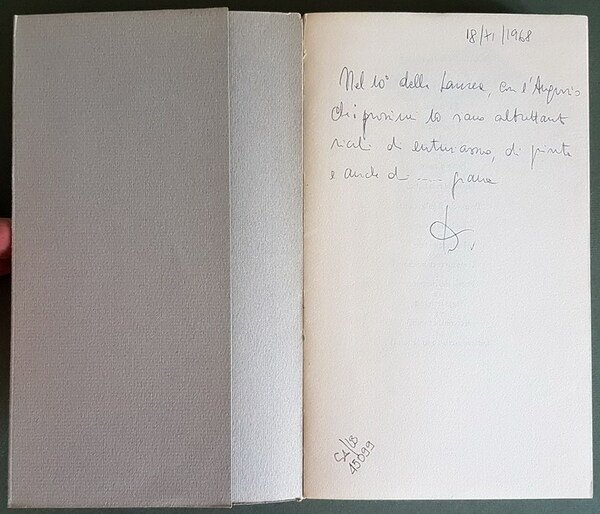 18/XI/1968
Nel 10° della Laurea, con l'Augurio
che i prossimi 10 siano altrettanto
ricchi di entusiasmo, di
e anche di .... grana
SA/LB
45099